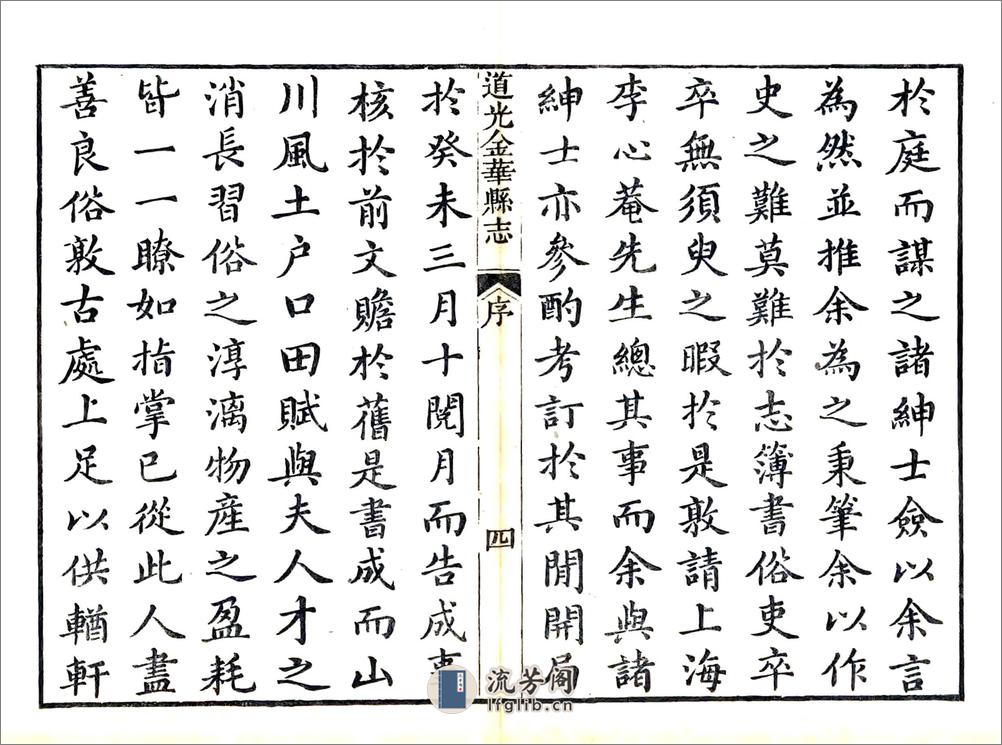 於庭而謀之諸紳士僉以余言
為然並推余為之秉筆余以作
史之難莫難於志簿書俗吏卒
卒無須臾之暇於是敦請上海
李心菴先生總其事而余與諸
紳士亦參酌考訂於其間開局
道光金華縣志
序
四
於癸未三月十閱月而告成事
核於前文贍於舊是書成而山
川風土戶口田賦與夫人才之
消長習俗之淳漓物產之盈耗
皆一一瞭如指掌已從此人盡
善良俗敦古處上足以供輶軒
流芳阁
lfglib.cn